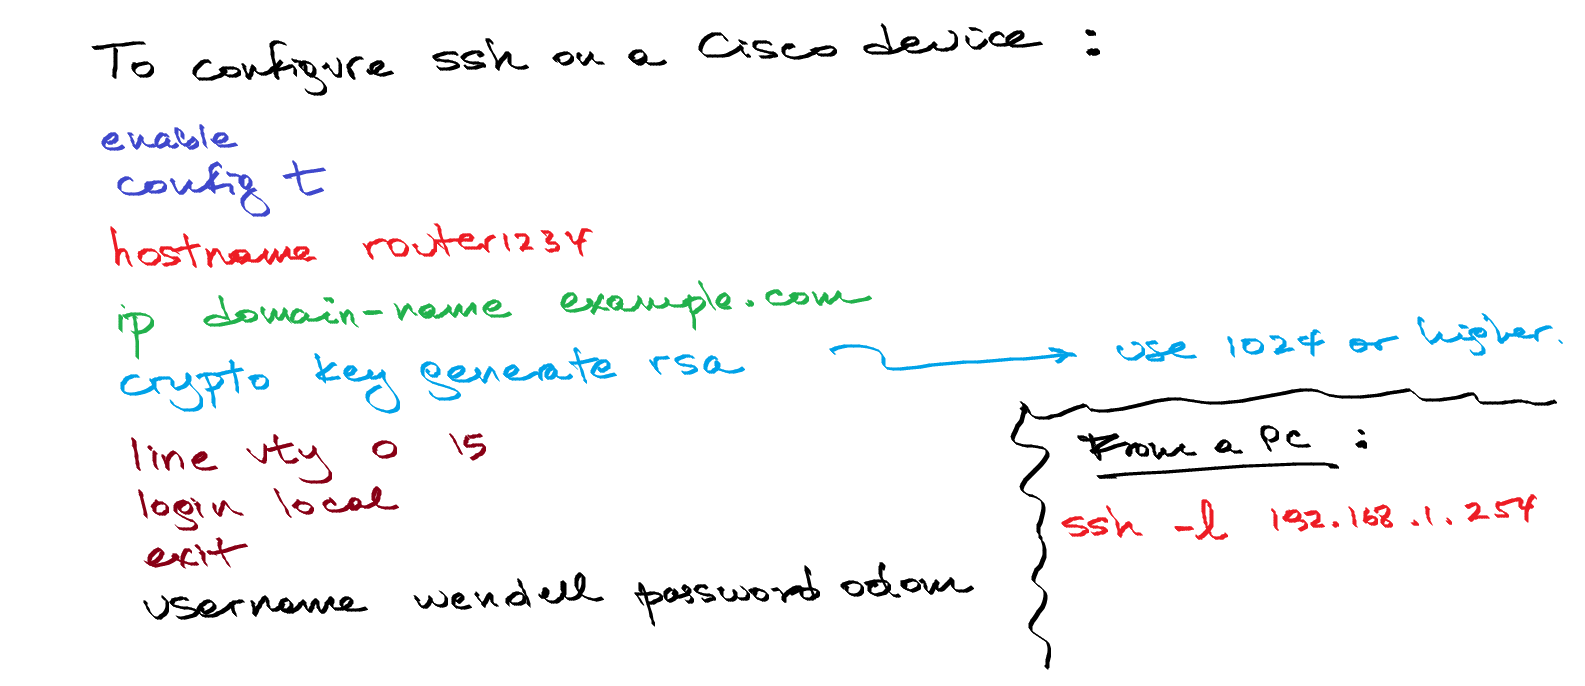 To configure ssh on a Cisco device :
enable
config t
hostname router1234
ip domain-name example.com
crypto key generate rsa → use 1024 or higher.
line vty 0 15
login local
exit
username wendell password odom
From a PC :
ssh -l 192.168.1.254